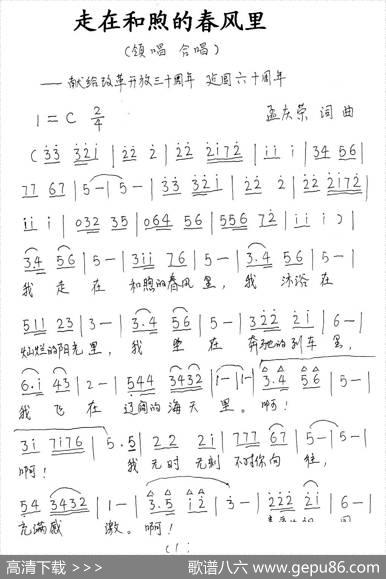 走在和煦的春风里
(领唱 合唱)
——献给改革开放三十周年 建国六十周年
1=C 2/4
孟庆荣 词曲
(3̇3̇ 3̇2̇1̇ | 2̇2̇ 2̇ | 2̇2̇ 2̇1̇72̇ | 1̇1̇ 1̇ | 34 56 |
77 67 | 5-| 5-| 3̇3̇ 3̇2̇1̇ | 2̇2̇ 2̇ | 2̇2̇ 2̇1̇72̇ |
1̇1̇ 1̇ | 032 35 | 064 56 | 556 72̇ | 1̇1̇ 1̇ ) |
3.4 56 | 5-| 31̇1̇ 76 | 5-| 3.4 56 | 5-|
我 走 在 和煦的春风 里, 我 沐浴 在
511 23 | 3-| 3.4 56 | 5-| 32̇2̇ 2̇1̇ | 6-|
灿烂的阳光 里, 我 坐 在 奔驰的列车 里,
6.1̇ 43 | 2-| 544 3432 | 1-| 1-| 3.4 56 | 5-|
我 飞 在 辽阔的 海 天 里。 啊!
31̇ 7176 | 5.5 | 22 21̇ | 777 67 | 5-| 5-|
啊! 我 无时 无刻 不对你向 往,
54 3432 | 1-| 3.5 1̇2̇ | 3̇-| 2̇2̇2̇ 2̇1̇ | 6-|
充满感 激。 啊!
(1)
高清下载 >>>
歌谱八六 www.gepu86.com